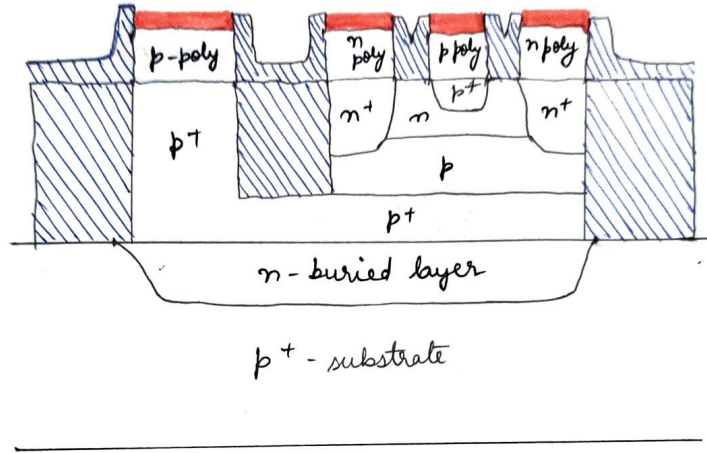 p-poly
n
poly
p poly
n poly
p+
n+
n
p+
n+
p
p+
n-buried layer
p+ - substrate